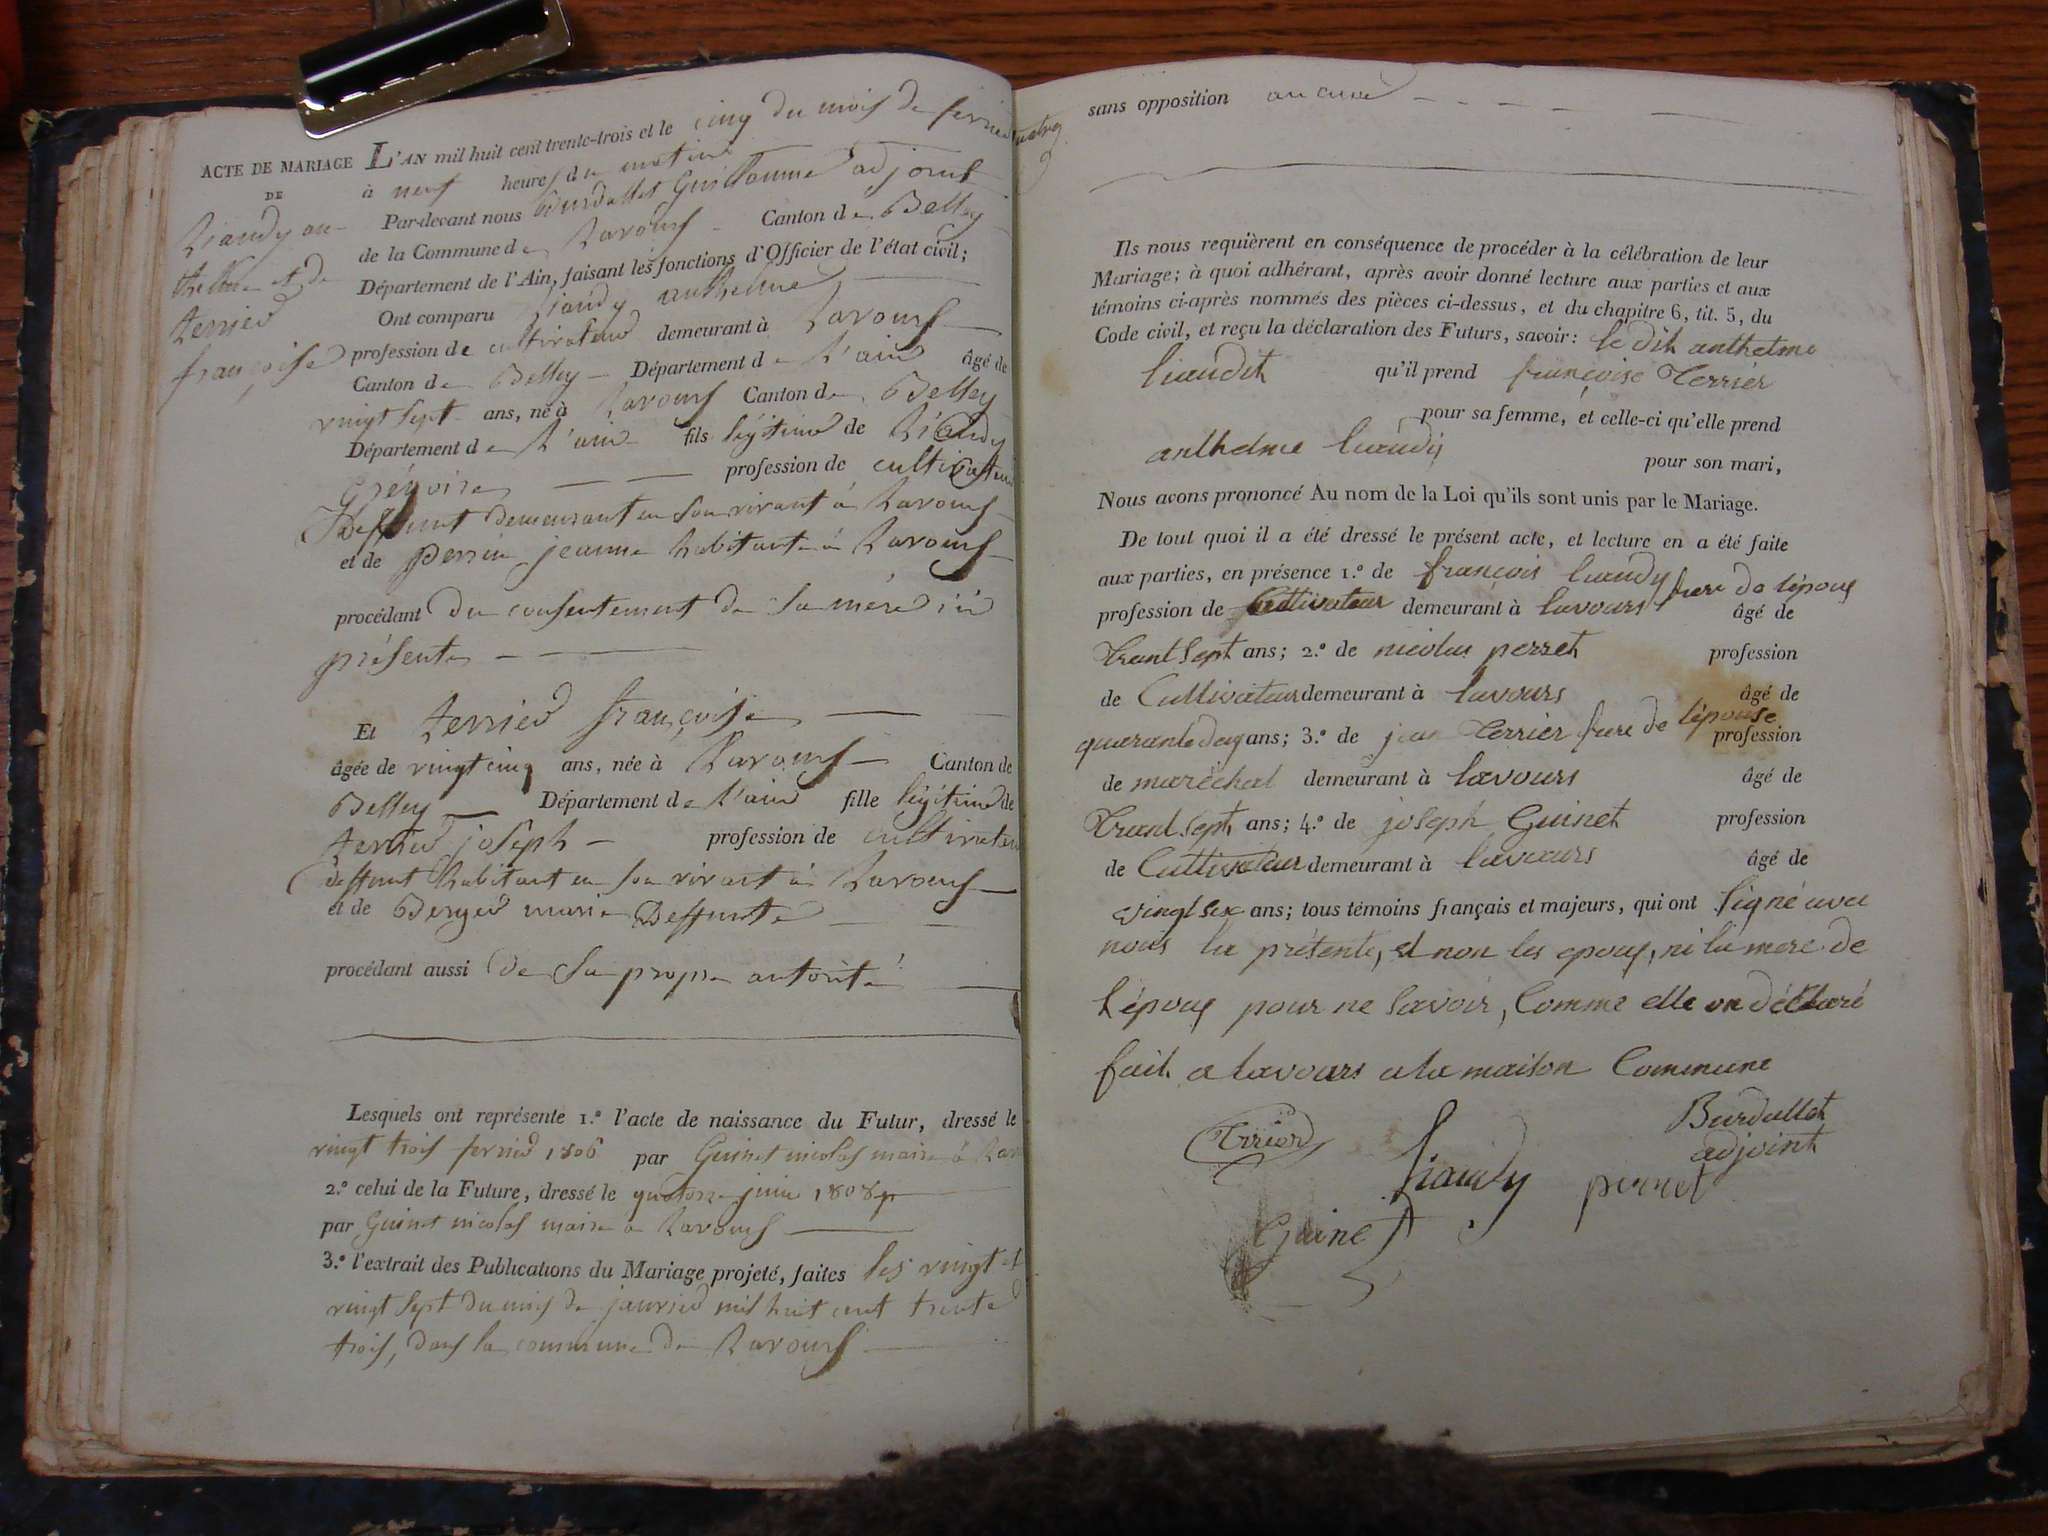 ACTE DE MARIAGE
DE
Liaudy an-
thelme et de
terrier
françoise
L'AN mil huit cent trente-trois et le cinq du mois de février
à neuf heures du matin
Par-devant nous Burdallet Guillaume adjoint
de la Commune de Lavours Canton de Belley
Département de l'Ain, faisant les fonctions d'Officier de l'état civil;
Ont comparu Liaudy anthelme
profession de cultivateur demeurant à Lavours
Canton de Belley Département de L'ain âgé de
vingt sept ans, né à Lavours Canton de Belley
Département de L'ain fils légitime de Liaudy
Grégoire profession de cultivateur
Deffunt demeurant en son vivant à Lavours
et de perrin jeanne habitante à Lavours
procédant du consentement de sa mère ici
présente
Et terrier françoise
âgée de vingt cinq ans, née à Lavours Canton de
Belley Département de L'ain fille légitime de
terrier joseph profession de cultivateur
deffunt habitant en son vivant à Lavours
et de Berger marie Deffunte
procédant aussi de sa propre autorité
Lesquels ont représente 1.º l'acte de naissance du Futur, dressé le
vingt trois fevrier 1806 par Guinet nicolas maire à Lav
2.º celui de la Future, dressé le quatorze juin 1808
par Guinet nicolas maire a Lavours
3.º l'extrait des Publications du Mariage projeté, faites les vingt et
vingt sept du mois de janvier mil huit cent trente
trois, dans la commune de Lavours
sans opposition aucune
Ils nous requièrent en conséquence de procéder à la célébration de leur
Mariage; à quoi adhérant, après avoir donné lecture aux parties et aux
témoins ci-après nommés des pièces ci-dessus, et du chapitre 6, tit. 5, du
Code civil, et reçu la déclaration des Futurs, savoir: le dit anthelme
liaudit qu'il prend françoise Terrier
pour sa femme, et celle-ci qu'elle prend
anthelme liaudy pour son mari,
Nous avons prononcé Au nom de la Loi qu'ils sont unis par le Mariage.
De tout quoi il a été dressé le présent acte, et lecture en a été faite
aux parties, en présence 1.º de françois liaudy frere de lépoux
profession de Cultivateur demeurant à lavours âgé de
Trant sept ans; 2.º de nicolas perret profession
de Cultivateur demeurant à lavours âgé de
quarante ans; 3.º de jean Terrier frere de lépouse profession
de maréchal demeurant à lavours âgé de
Trant sept ans; 4.º de joseph Guinet profession
de Cultivateur demeurant à lavours âgé de
vingt six ans; tous témoins français et majeurs, qui ont signé avec
nous la présente, et non les epoux, ni la mere de
l'époux pour ne savoir, Comme elle on déclaré
fait a lavours a la maison Commune
Burdallet
adjoint
Liaudy perret
Guinet